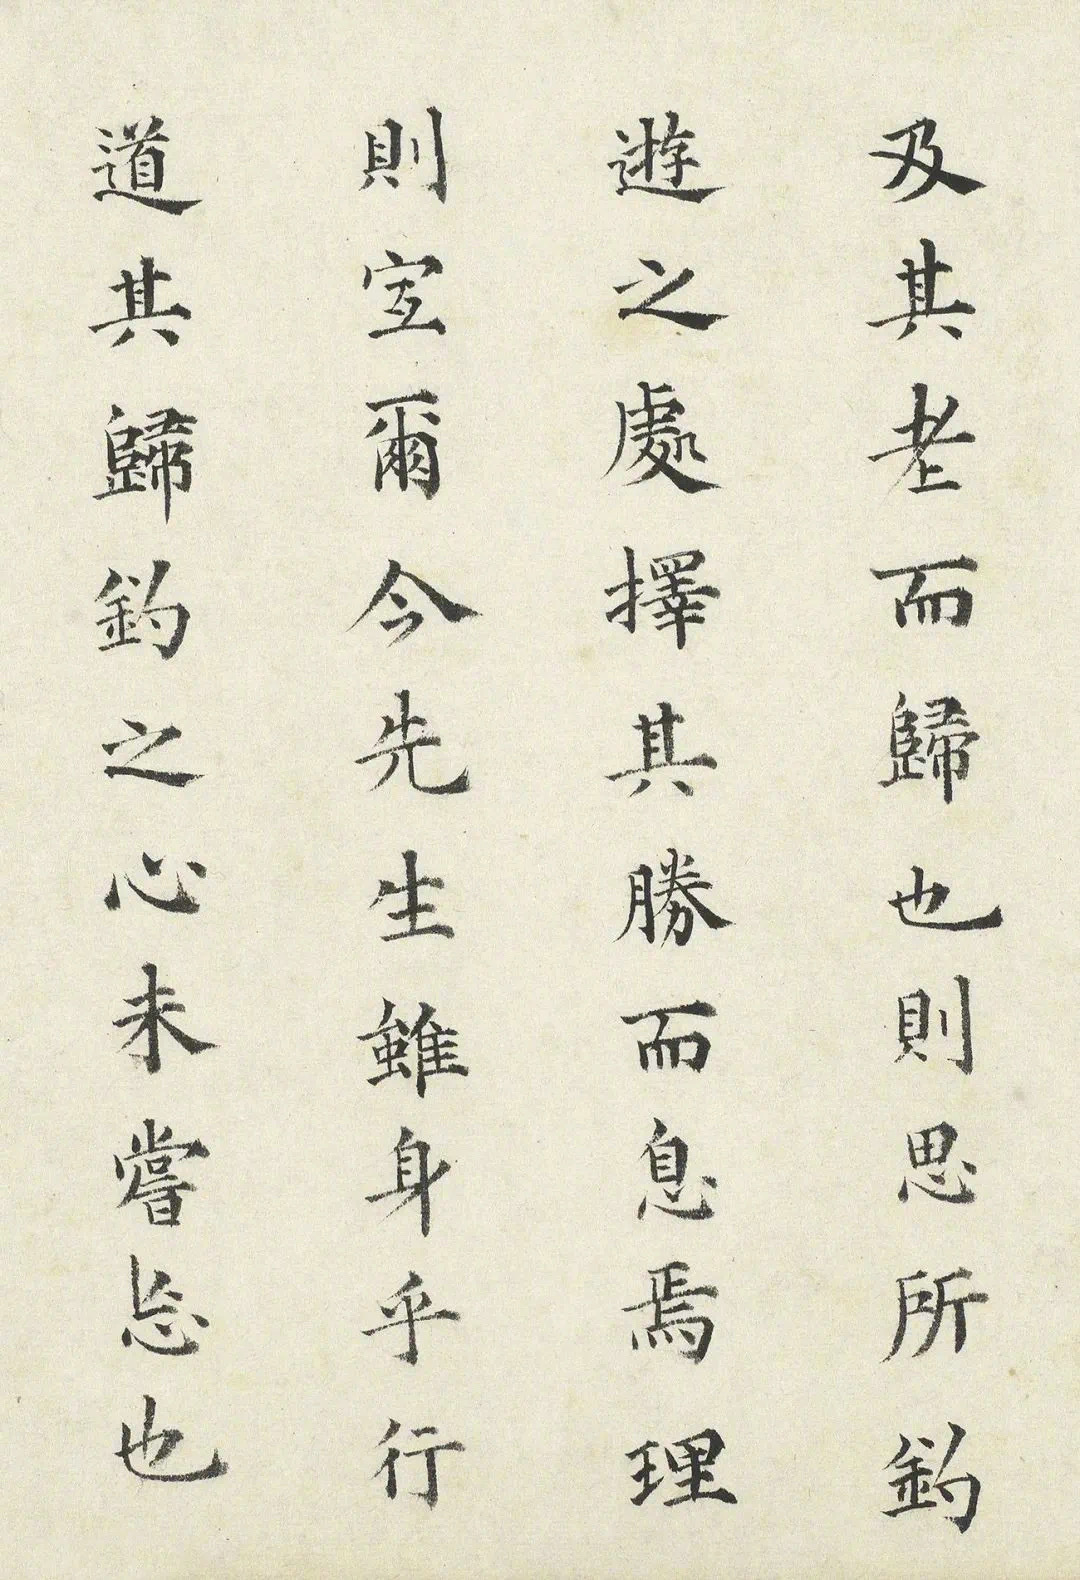 及其老而歸也則思所釣
遊之處擇其勝而息焉理
則宜爾今先生雖身乎行
道其歸釣之心未嘗忘也